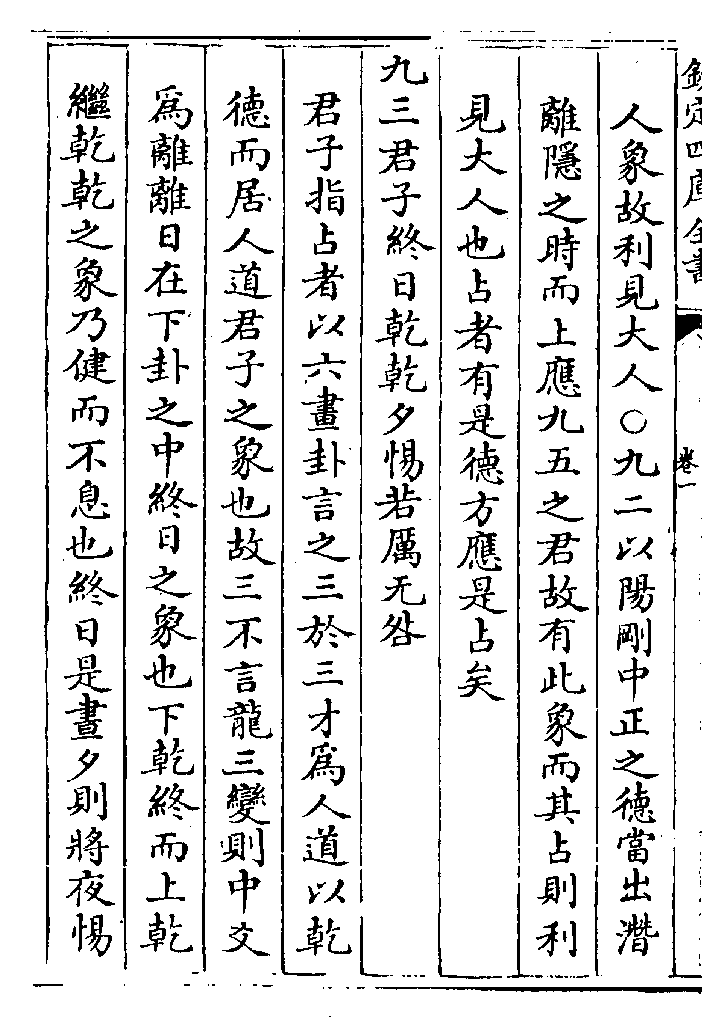 欽定四庫全書
卷一
人象故利見大人○九二以陽剛中正之德當出潛
離隱之時而上應九五之君故有此象而其占則利
見大人也占者有是德方應是占矣
九三君子終日乾乾夕惕若厲无咎
君子指占者以六畫卦言之三於三才爲人道以乾
德而居人道君子之象也故三不言龍三變則中爻
爲離離日在下卦之中終日之象也下乾終而上乾
繼乾乾之象乃健而不息也終日是晝夕則將夜惕